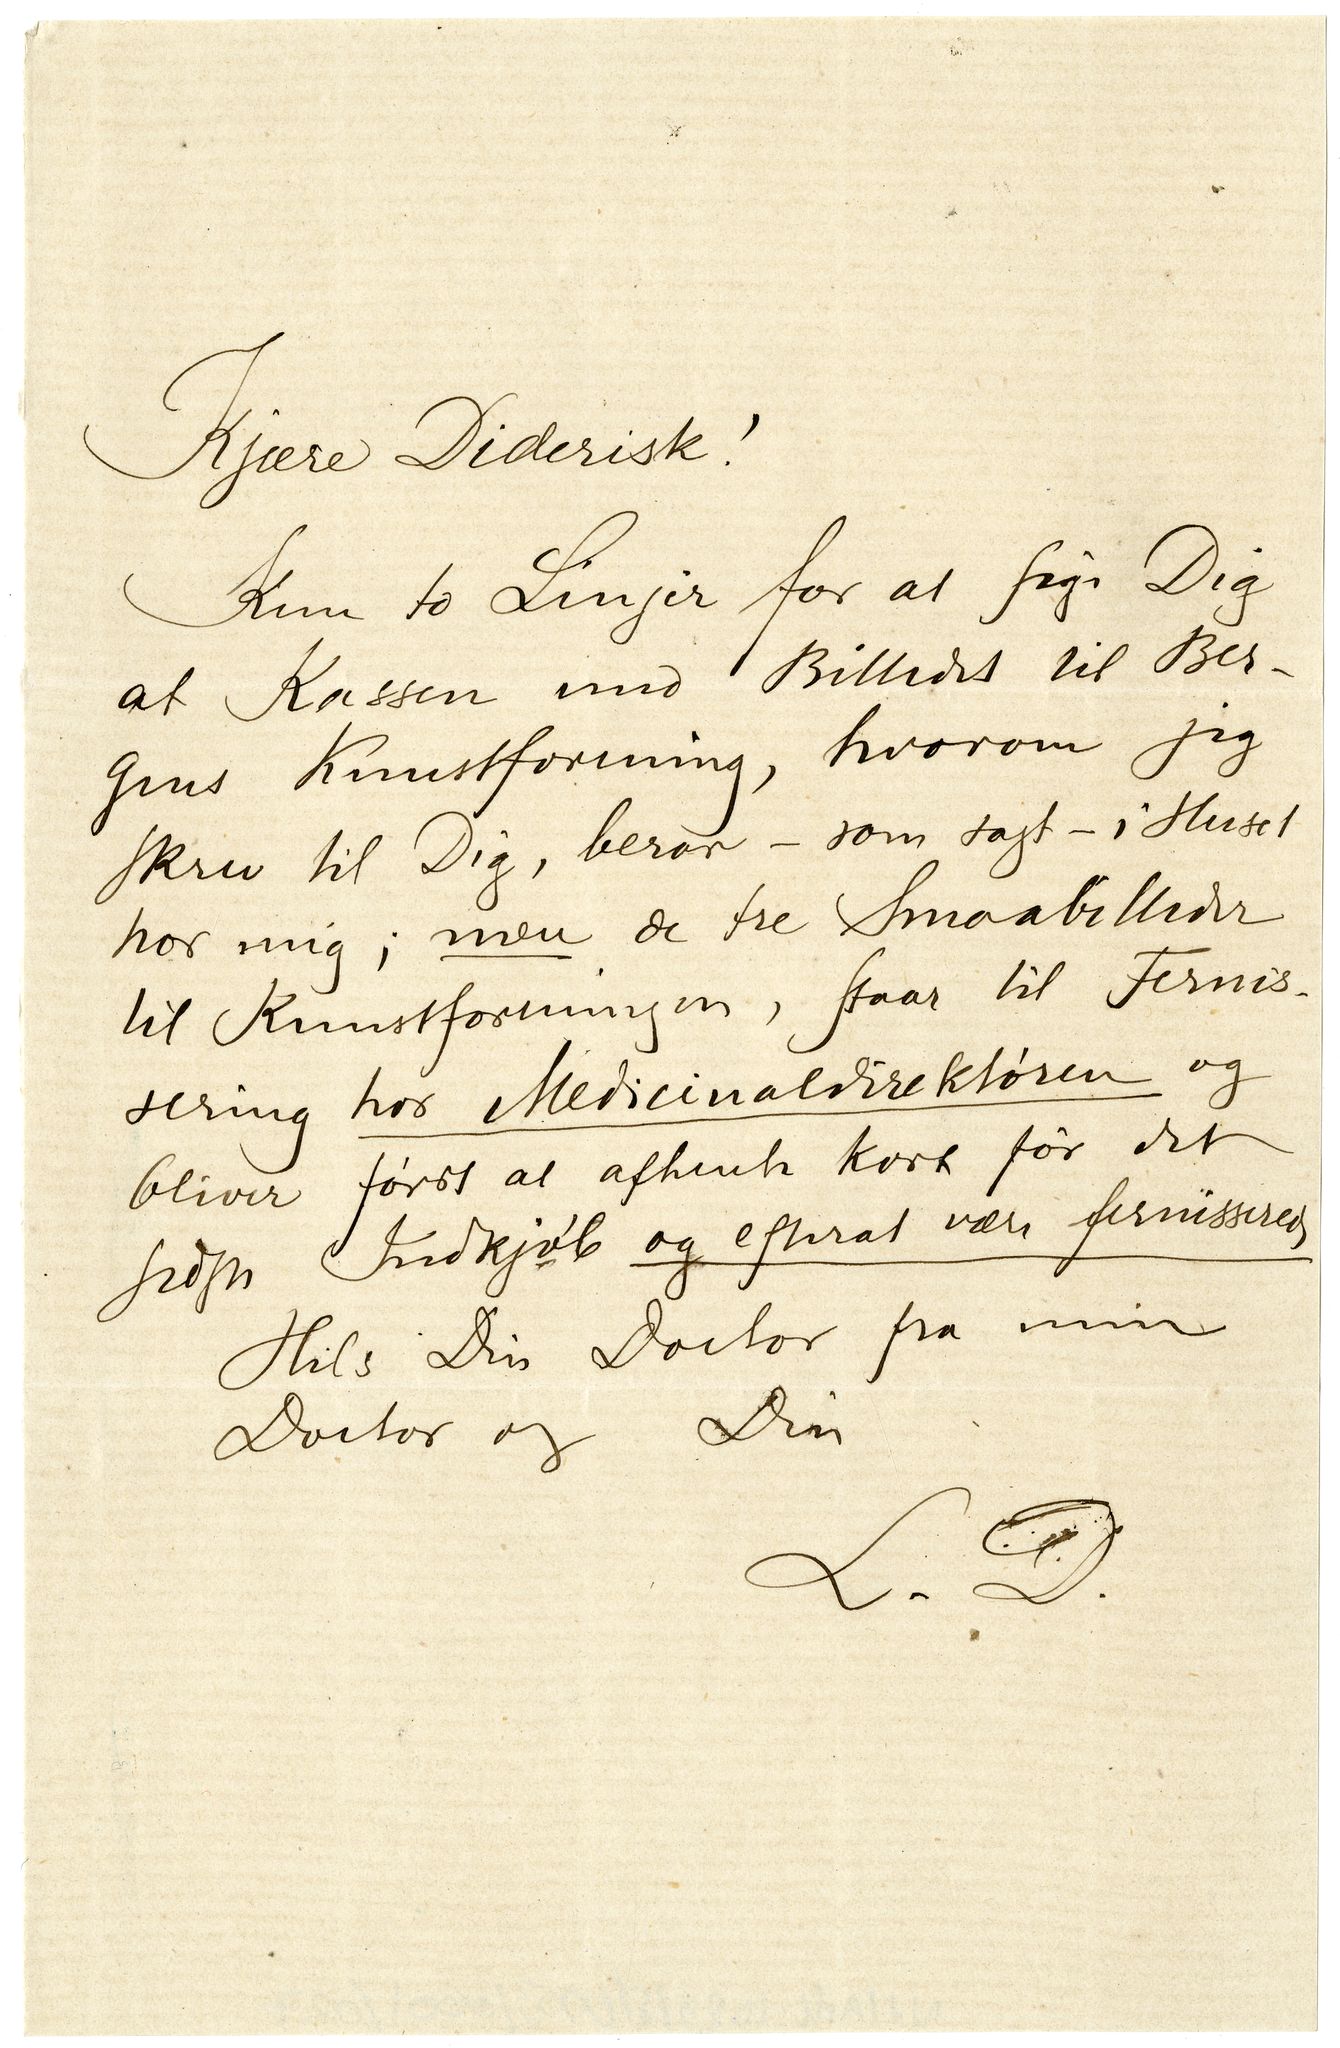 Kjære Diderisk!
Kun to Linjer for at sige Dig
at Kassen med Billedet til Ber-
gens Kunstforening, hvorom jeg
skrev til Dig, beror - som sagt - i Huset
hos mig; men de tre Smaabilleder
til Kunstforeningen, staar til Fernis-
sering hos Medicinaldirektóren og
bliver fórst at afhente kort fór det
sidste Indkjób og efterat være fernisserede
Hils Din Doctor fra min
Doctor og Din
L. D.